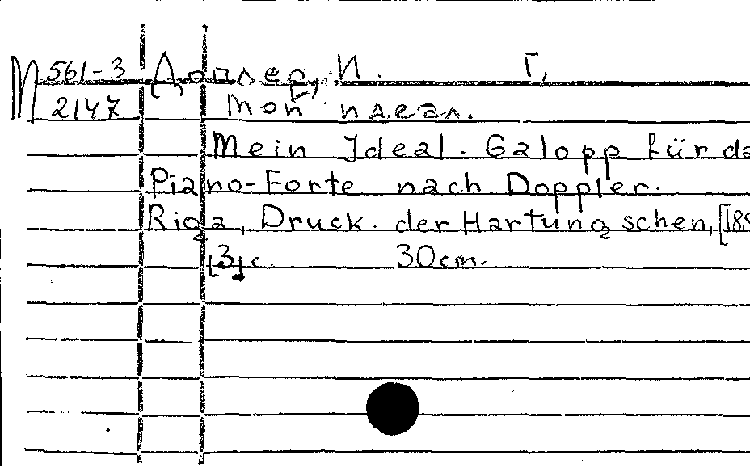 М 561-3 Доплер, И. Г.
2147 Мой идеал.
Mein Ideal. Galopp für da
Piano-Forte nach Doppler.
Riga, Druck. der Hartung schen, [189
[3] c. 30 cm.